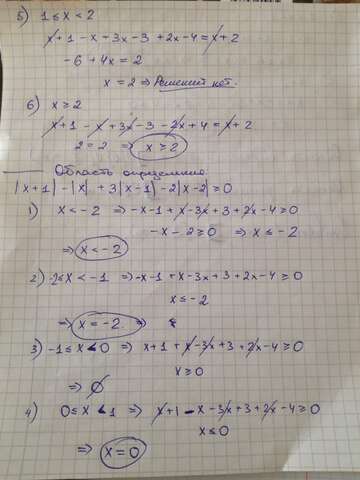 5) 1 ≤ x < 2
x + 1 - x + 3x - 3 + 2x - 4 = x + 2
-6 + 4x = 2
x = 2 ⇒ Решений нет.
6) x ≥ 2
x + 1 - x + 3x - 3 - 2x + 4 = x + 2
2 = 2 ⇒ x ≥ 2
Область определения
|x+1| - |x| + 3|x-1| - 2|x-2| ≥ 0
1) x < -2 ⇒ -x - 1 + x - 3x + 3 + 2x - 4 ≥ 0
-x - 2 ≥ 0 ⇒ x ≤ -2
⇒ x < -2
2) -2 ≤ x < -1 ⇒ -x - 1 + x - 3x + 3 + 2x - 4 ≥ 0
x ≤ -2
⇒ x = -2 ⇒
3) -1 ≤ x < 0 ⇒ x + 1 + x - 3x + 3 + 2x - 4 ≥ 0
x ≥ 0
⇒ ∅
4) 0 ≤ x < 1 ⇒ x + 1 - x - 3x + 3 + 2x - 4 ≥ 0
x ≤ 0
⇒ x = 0